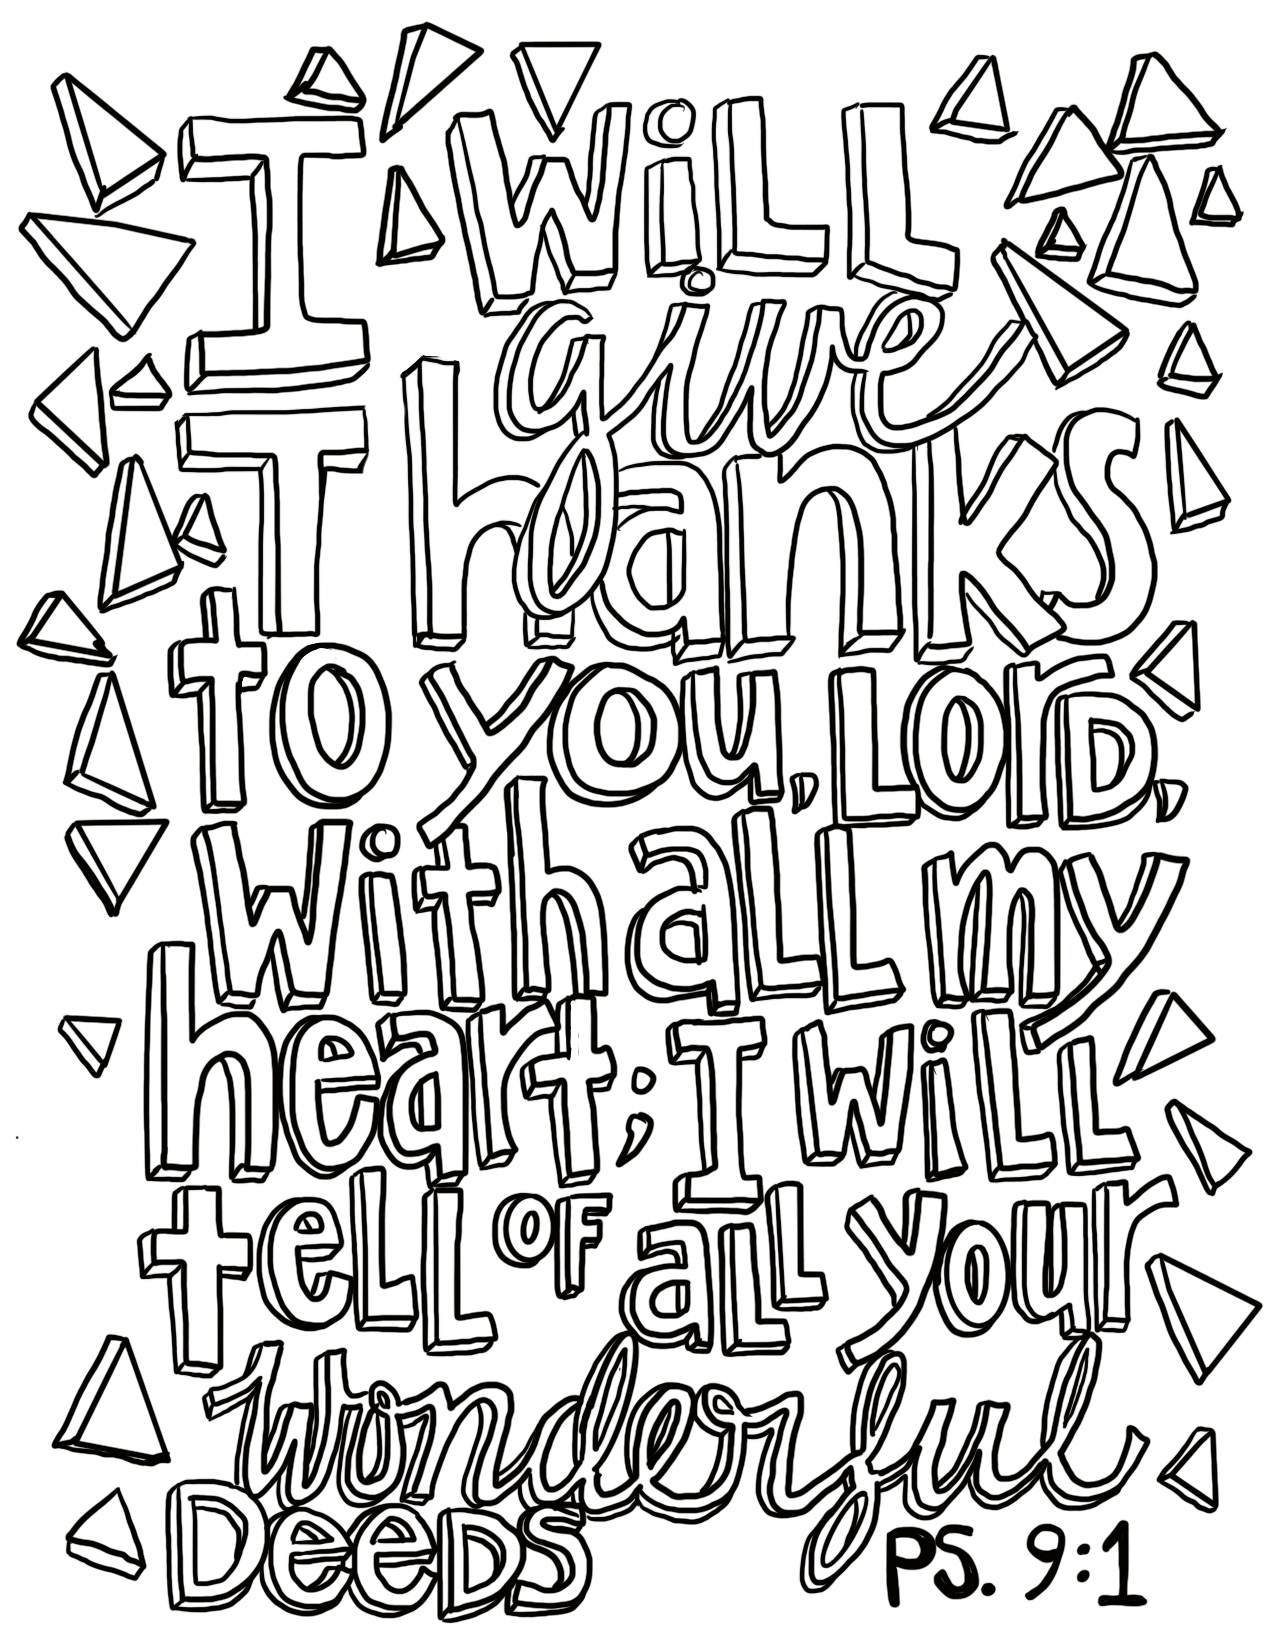 I will
give
Thanks
to you, Lord,
with all my
heart; I will
tell of all your
wonderful
Deeds
PS. 9:1